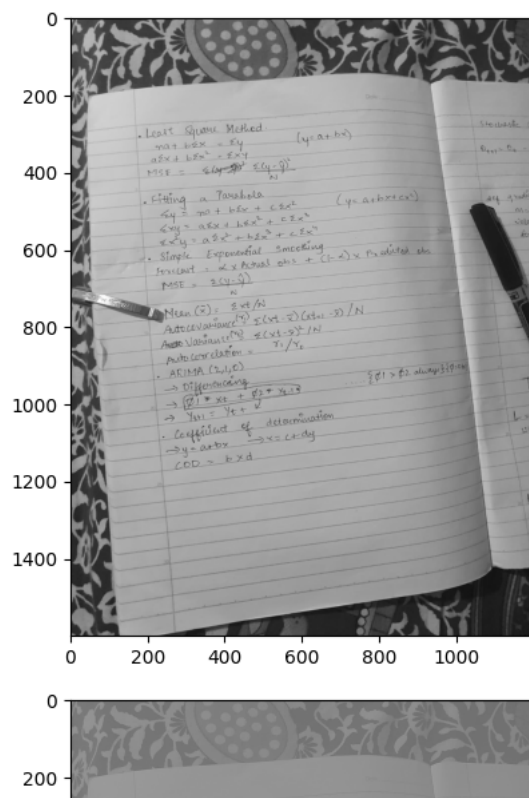 0
200
400
600
800
1000
1200
1400
. Least Square Method
na + bΣx = Σy (y = a + bx)
aΣx + bΣx² = Σxy
MSE = Σ(y-ŷ)² / N
. Fitting a Parabola
Σy = na + bΣx + cΣx² (y = a+bx+cx²)
Σxy = aΣx + bΣx² + cΣx³
Σx²y = aΣx² + bΣx³ + cΣx⁴
. Simple Exponential Smoothing
Forecast = α x Actual obs + (1-α) x Predicted obs
MSE = Σ(y-ŷ) / N
Mean (x̄) = Σxt/N
Autocovariance = Σ(xt-x̄)(xt+1-x̄)/N
Variance = Σ(xt-x̄)²/N
Autocorrelation = r₁/r₀
. ARIMA (2,1,0)
→ Differencing
→ ϕ1 * xt + ϕ2 *
→ Yt+1 = Yt +
. Coefficient of determination
→ y = a+bx → x = c+dy
COD = b x d
Stochastic
0 200 400 600 800 1000
0
200